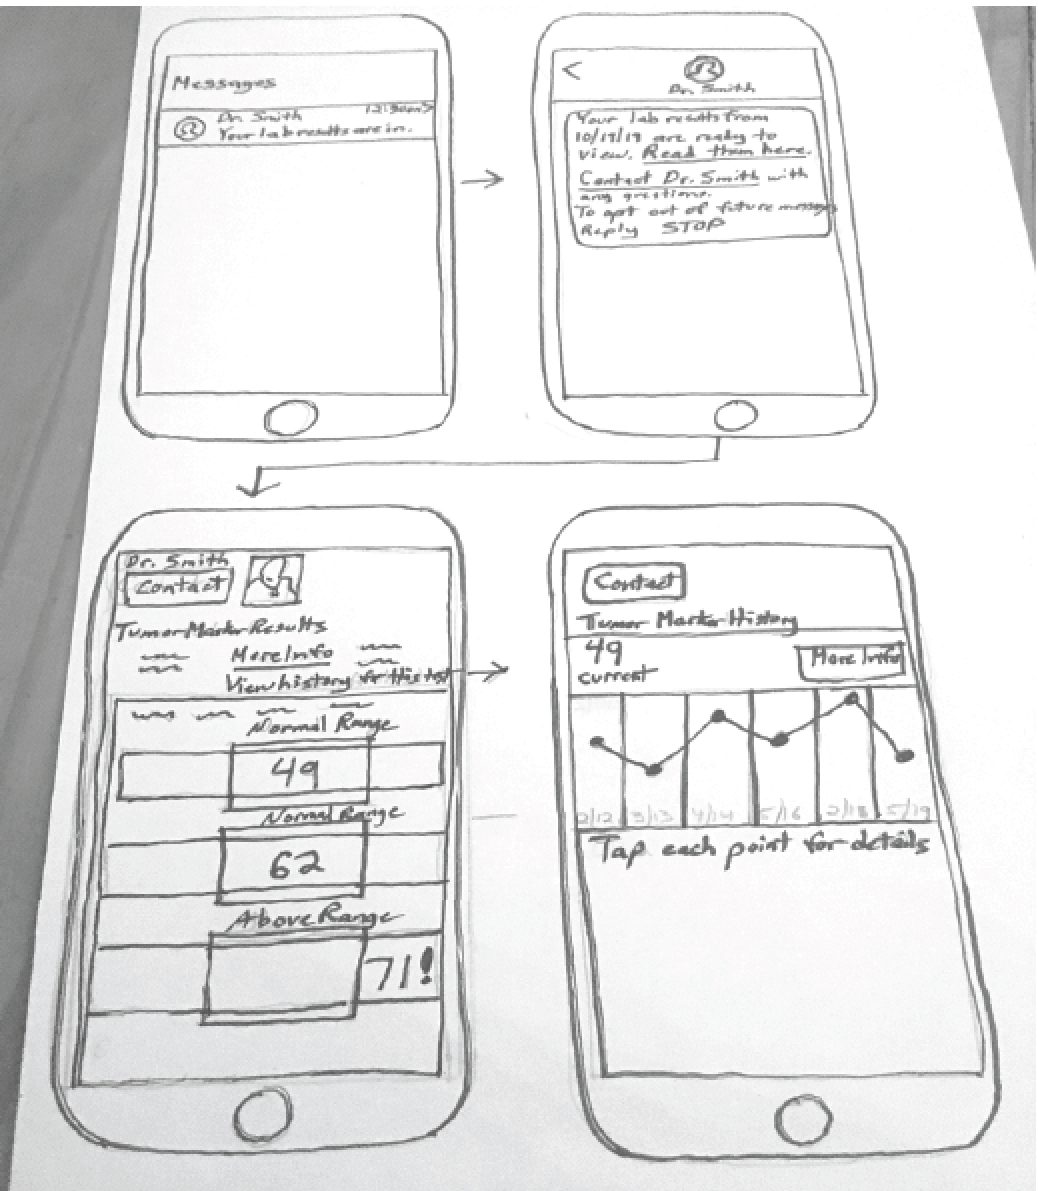 Messages
Dr. Smith
Your lab results are in.
<
Dr. Smith
Your lab results from
are ready to
view. Read them here.
Contact Dr. Smith with
any questions.
To opt out of future messages
Reply STOP
Dr. Smith
Contact
Tumor Marker Results
More Info
View history for this test
Normal Range
49
Normal Range
62
Above Range
71!
Contact
Tumor Marker History
49
current
More Info
2/12 3/13 4/14 5/16 2/18 5/19
Tap each point for details